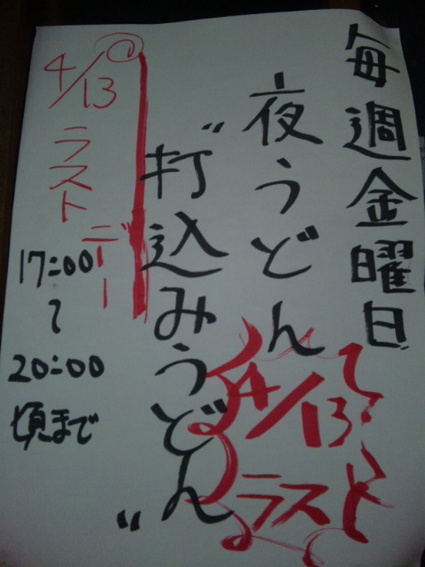 毎週金曜日
夜うどん
〝打込みうどん〟
4/13ラスト
4/13ラストデー
17:00
〜
20:00
頃まで